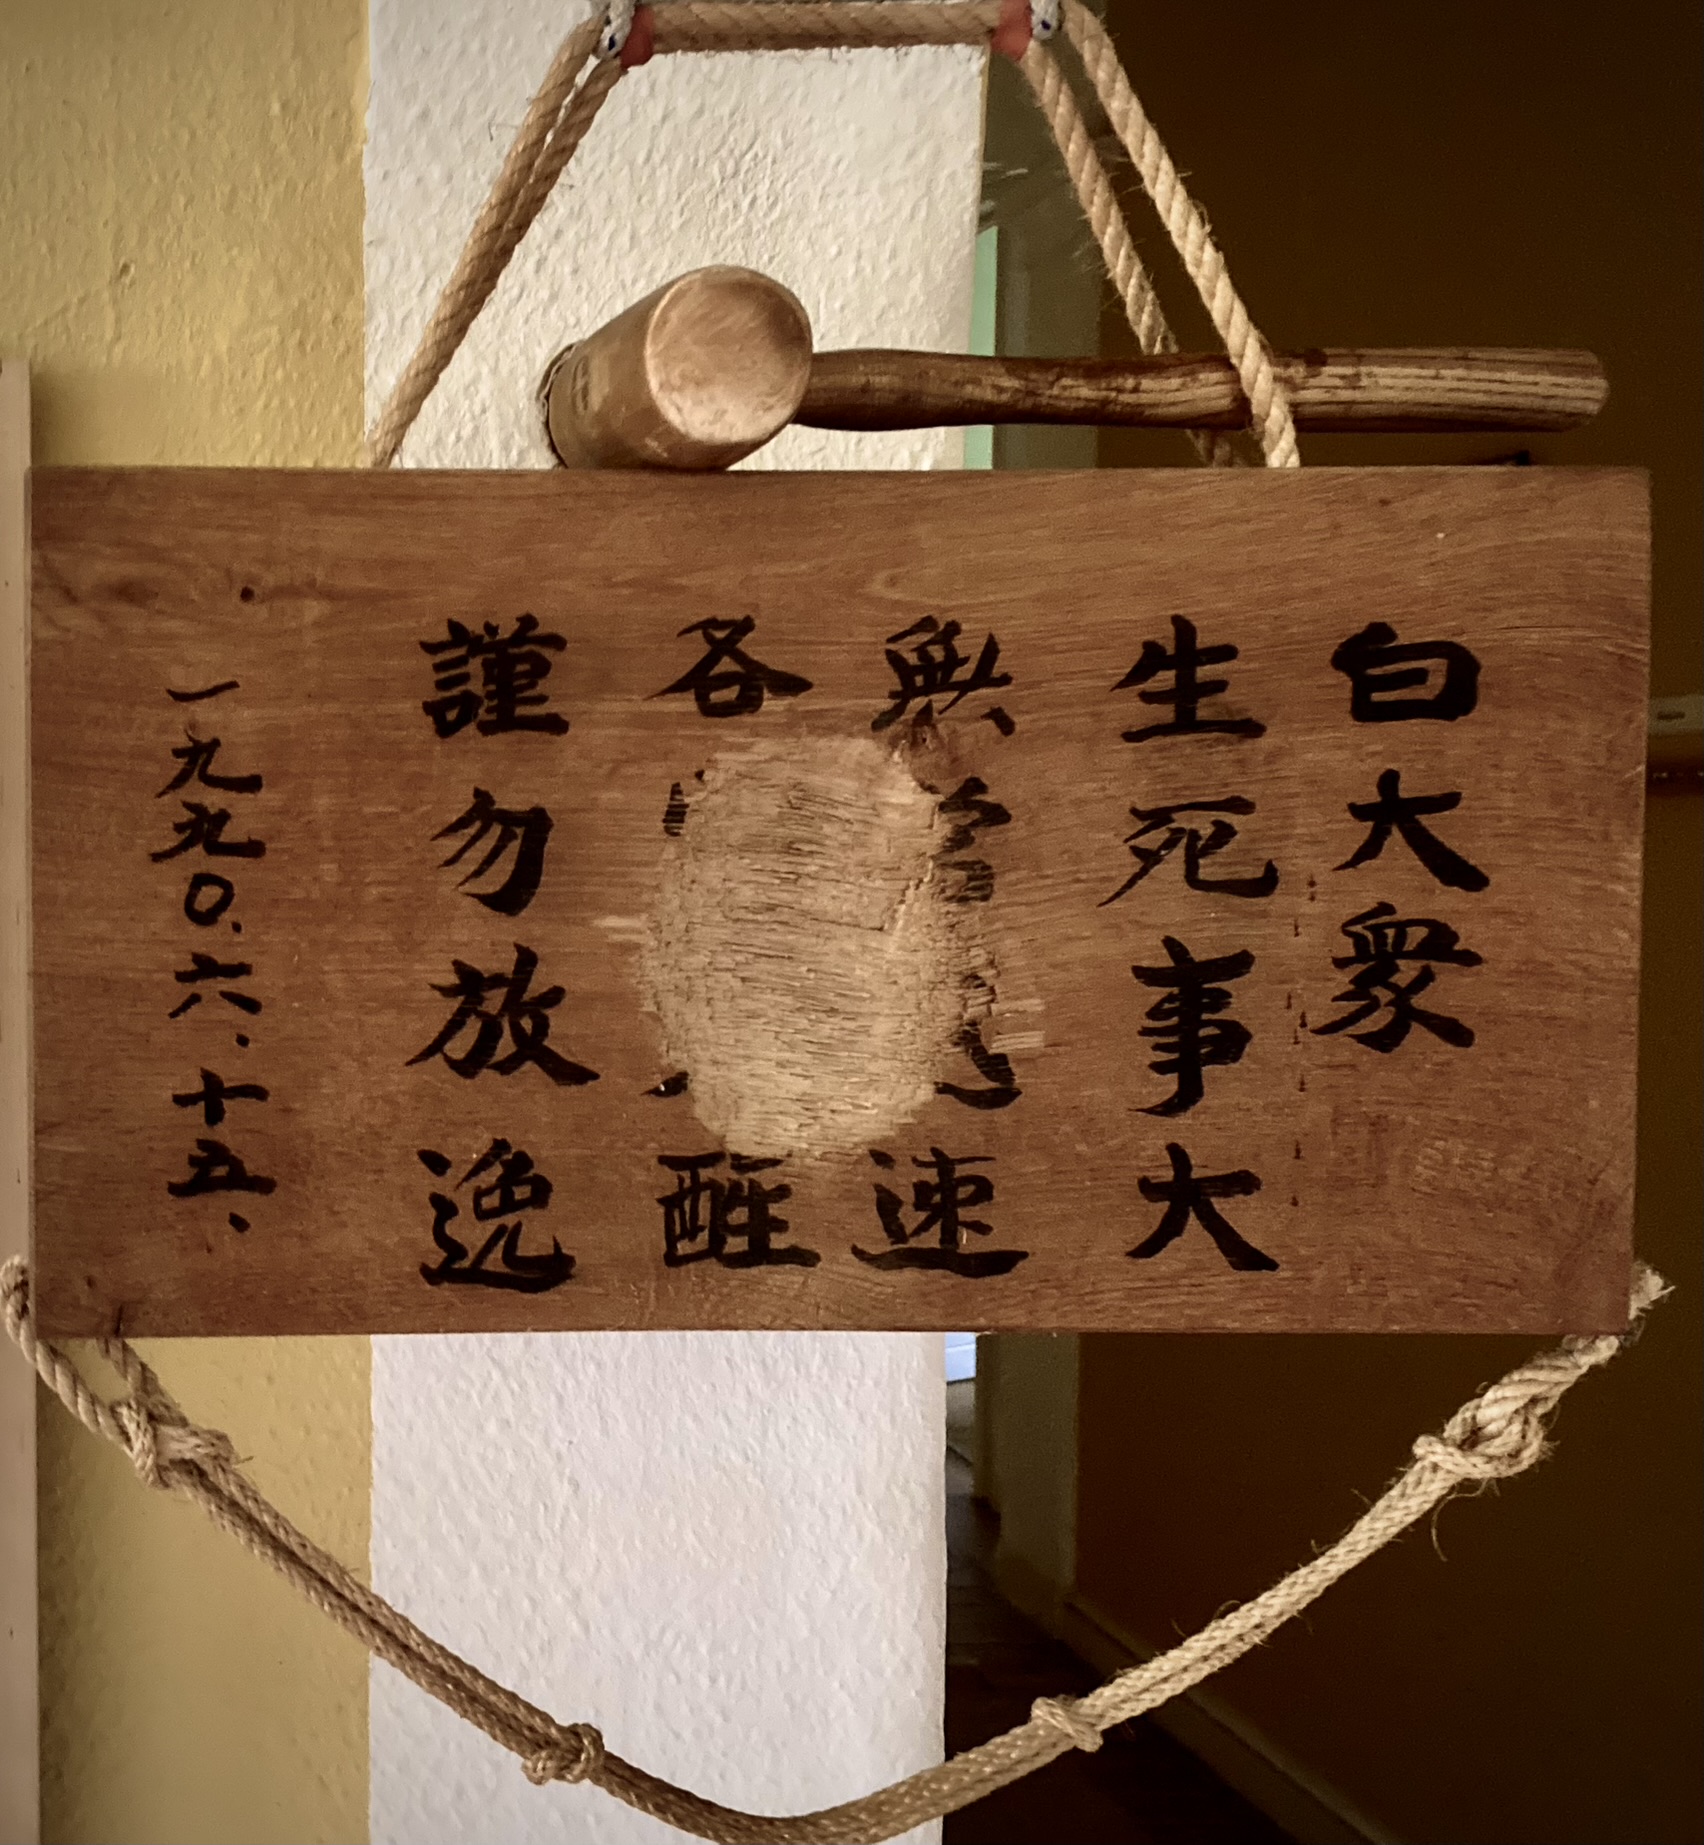 白大衆
生死事大
無速
各醒
謹勿放逸
一九九〇.六.十五.